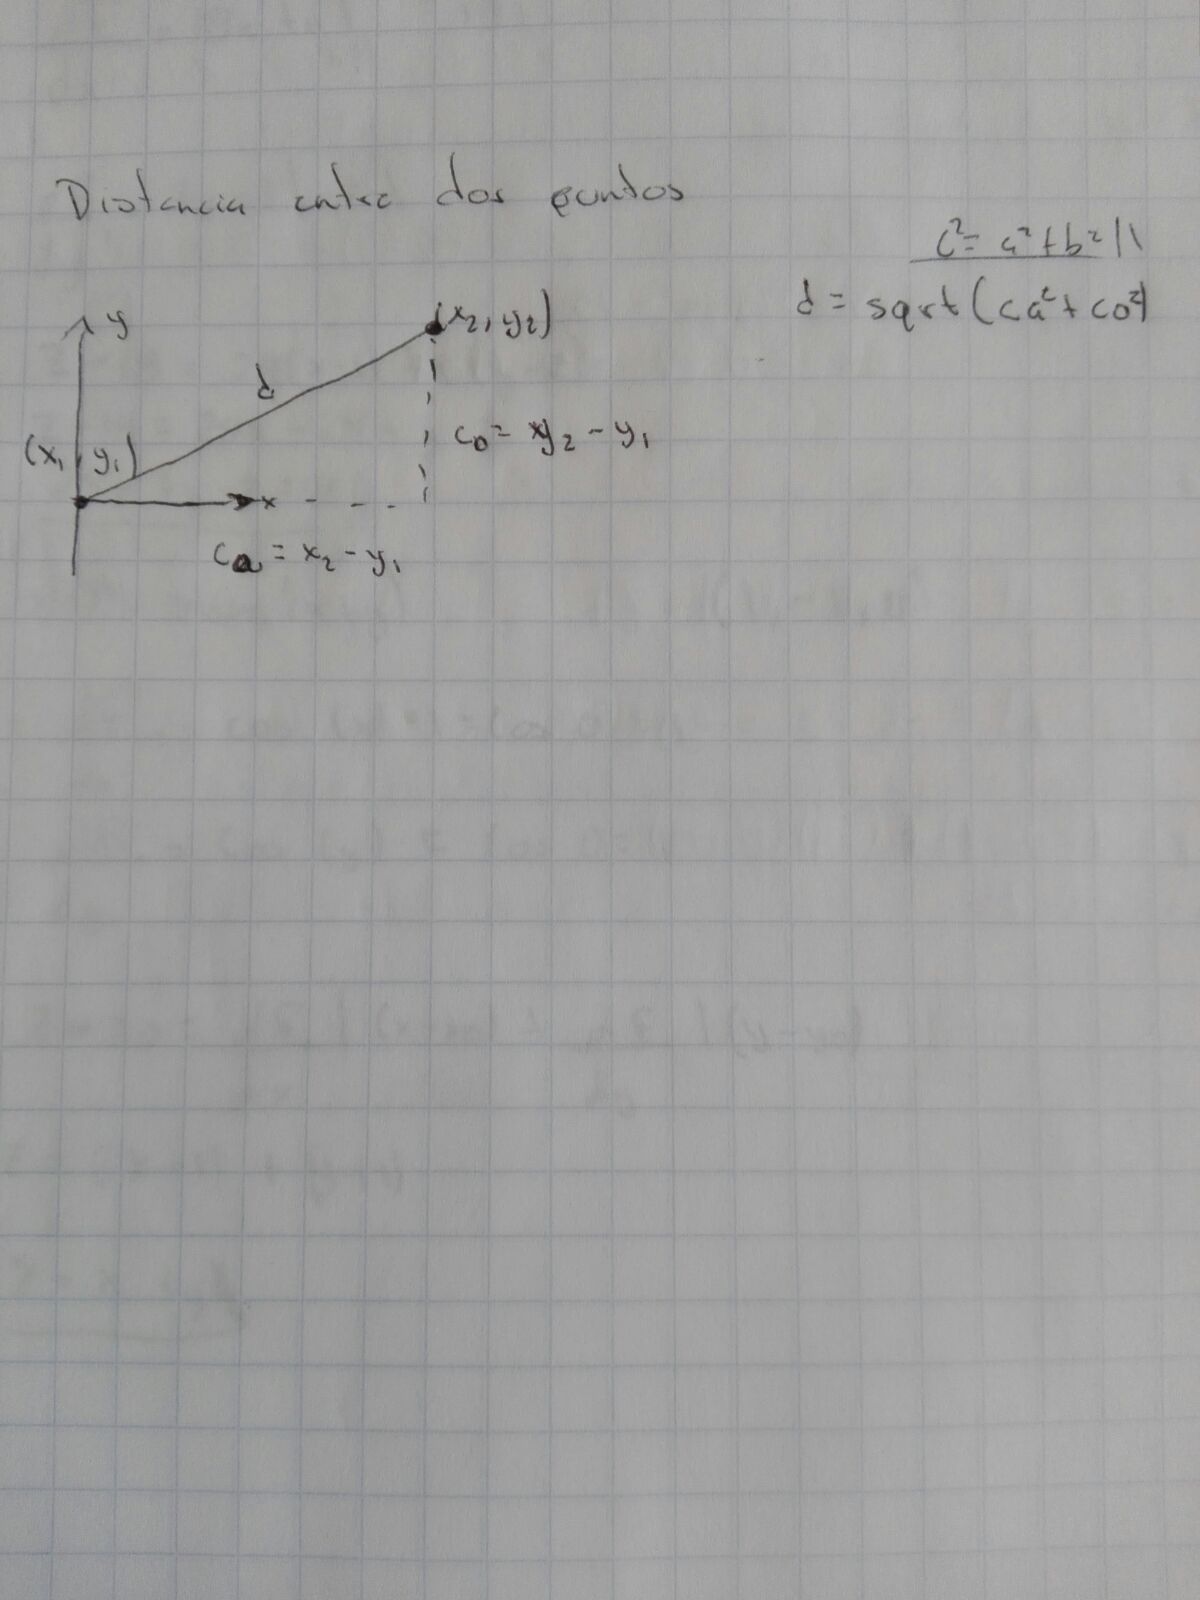 Distancia entre dos puntos
c² = a² + b² //
d = sqrt(ca² + co²)
y
(x₂, y₂)
d
(x₁, y₁)
co = y₂ - y₁
x
ca = x₂ - y₁